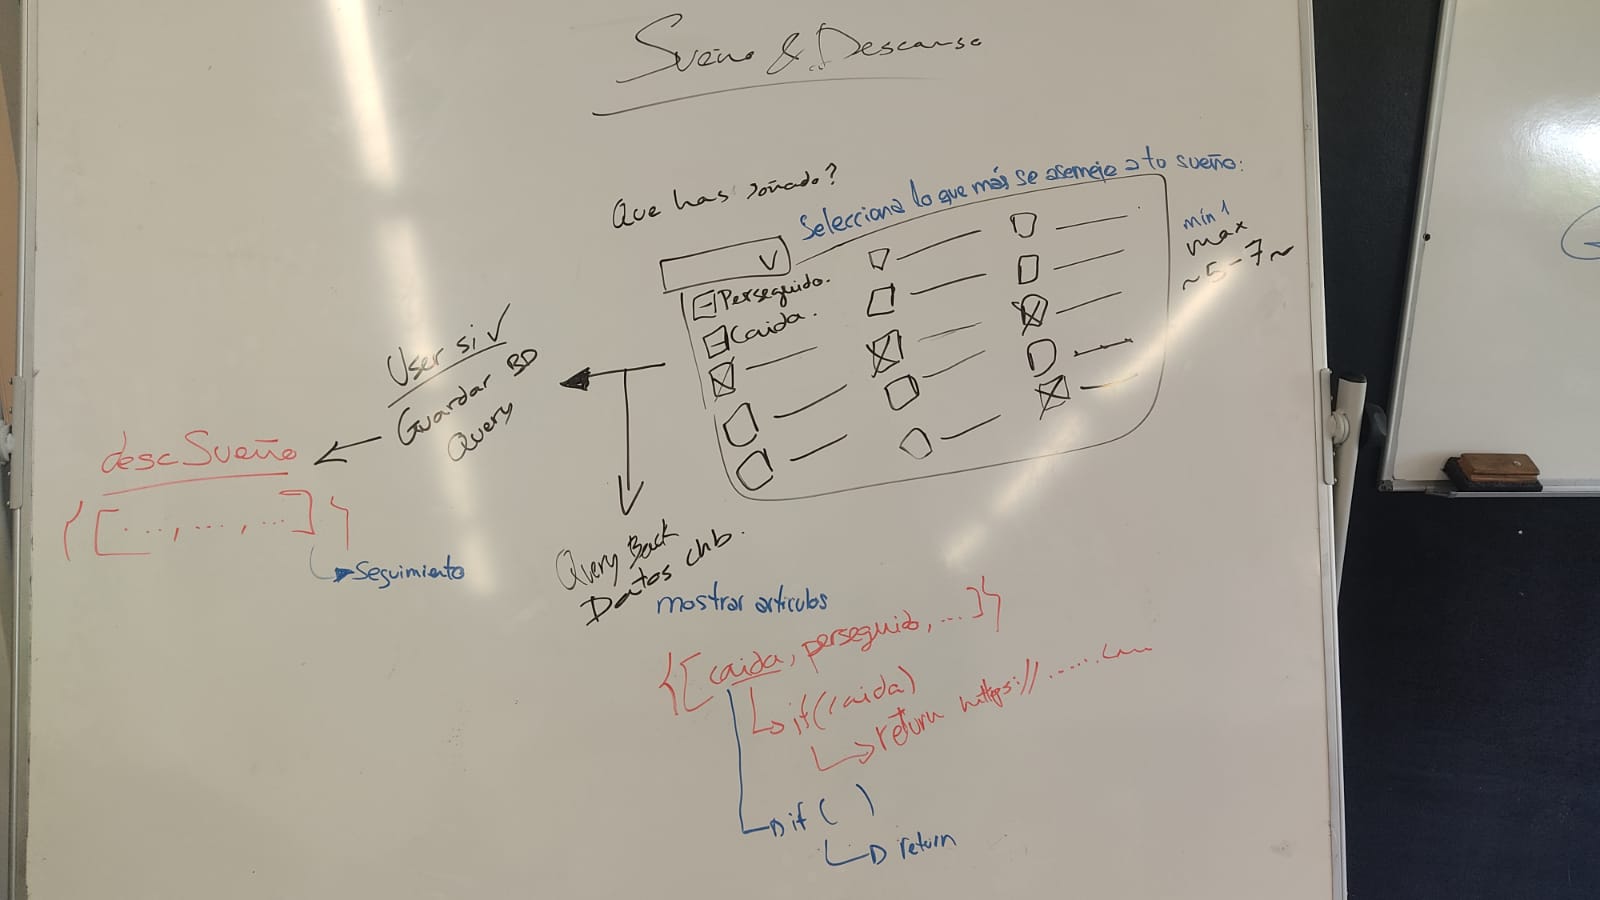 Sueño & Descanso
Que has soñado?
Selecciona lo que más se asemeje a tu sueño:
min 1
max
~5-7~
Perseguido.
Caida.
User si ✓
Guardar BD
Query
descSueño
{[..., ..., ...]}
Seguimiento
Query Back
Datos chb.
mostrar artículos
{[caida, perseguido, ...]}
if(caida)
return https://......com
if ( )
return